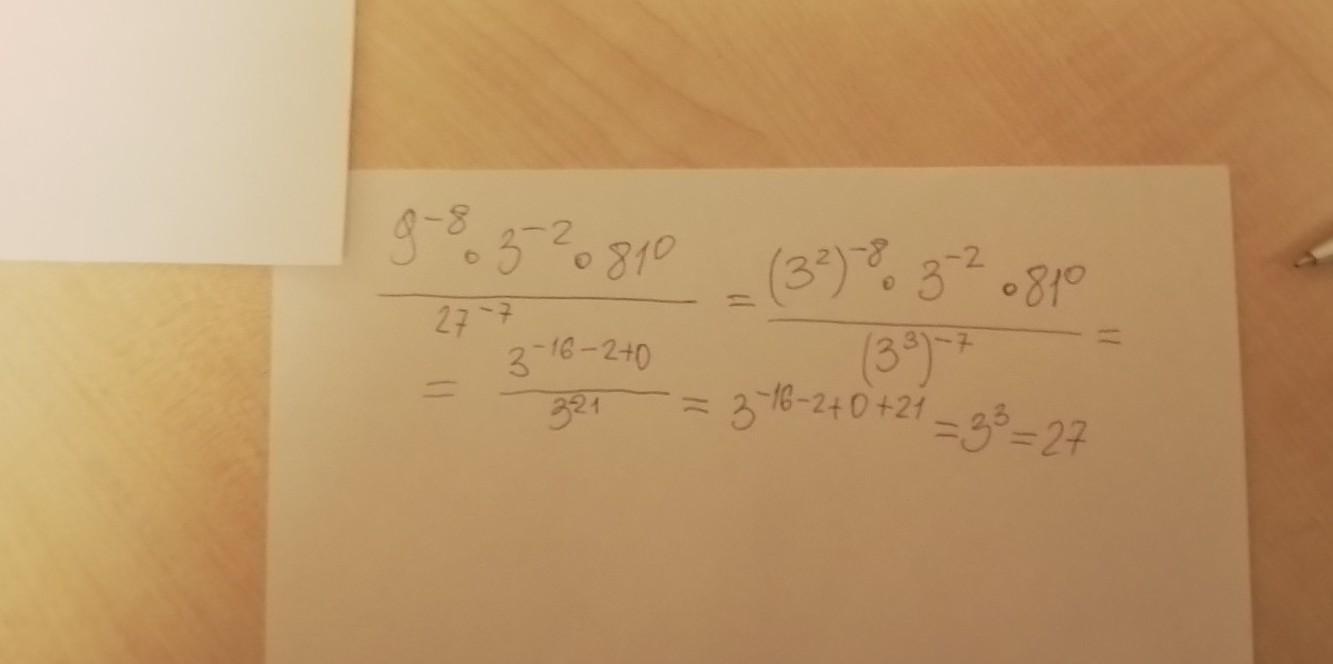 9⁻⁸ · 3⁻² · 81⁰ / 27⁻⁷ = (3²)⁻⁸ · 3⁻² · 81⁰ / (3³)⁻⁷ =
= 3⁻¹⁶⁻²⁺⁰ / 3²¹ = 3⁻¹⁶⁻²⁺⁰⁺²¹ = 3³ = 27